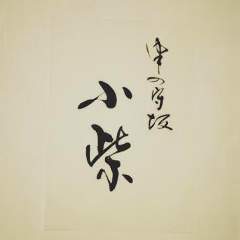 津の守坂
小柴